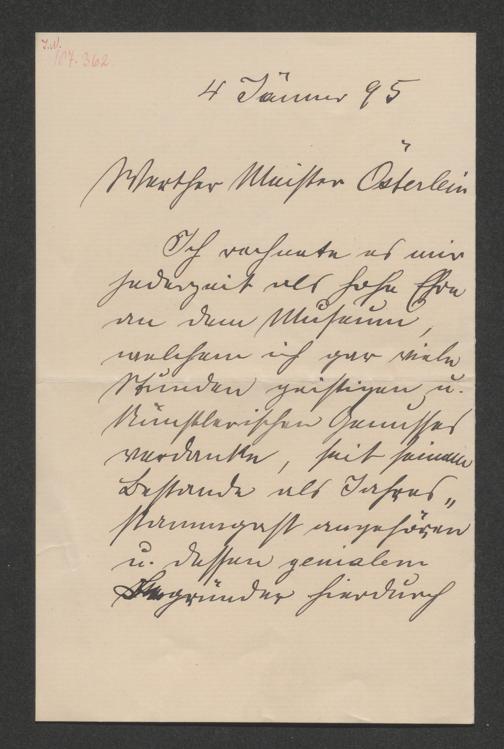 I.N.
107.362
4 Jänner 95
Werther Meister Österlein
Ich rechnete es mir
jederzeit als hohe Ehre
an dem Museum,
welchem ich gar viele
Stunden geistigen u.
künstlerischen Genusses
verdanke, seit seinem
Bestande als Jahres„
stammgast angehören
u. dessen genialem
Begründer hierdurch